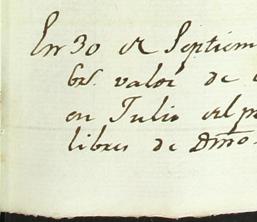 En 30 de Septiem
brs. valor de
en Julio del p
libres de Dmo.